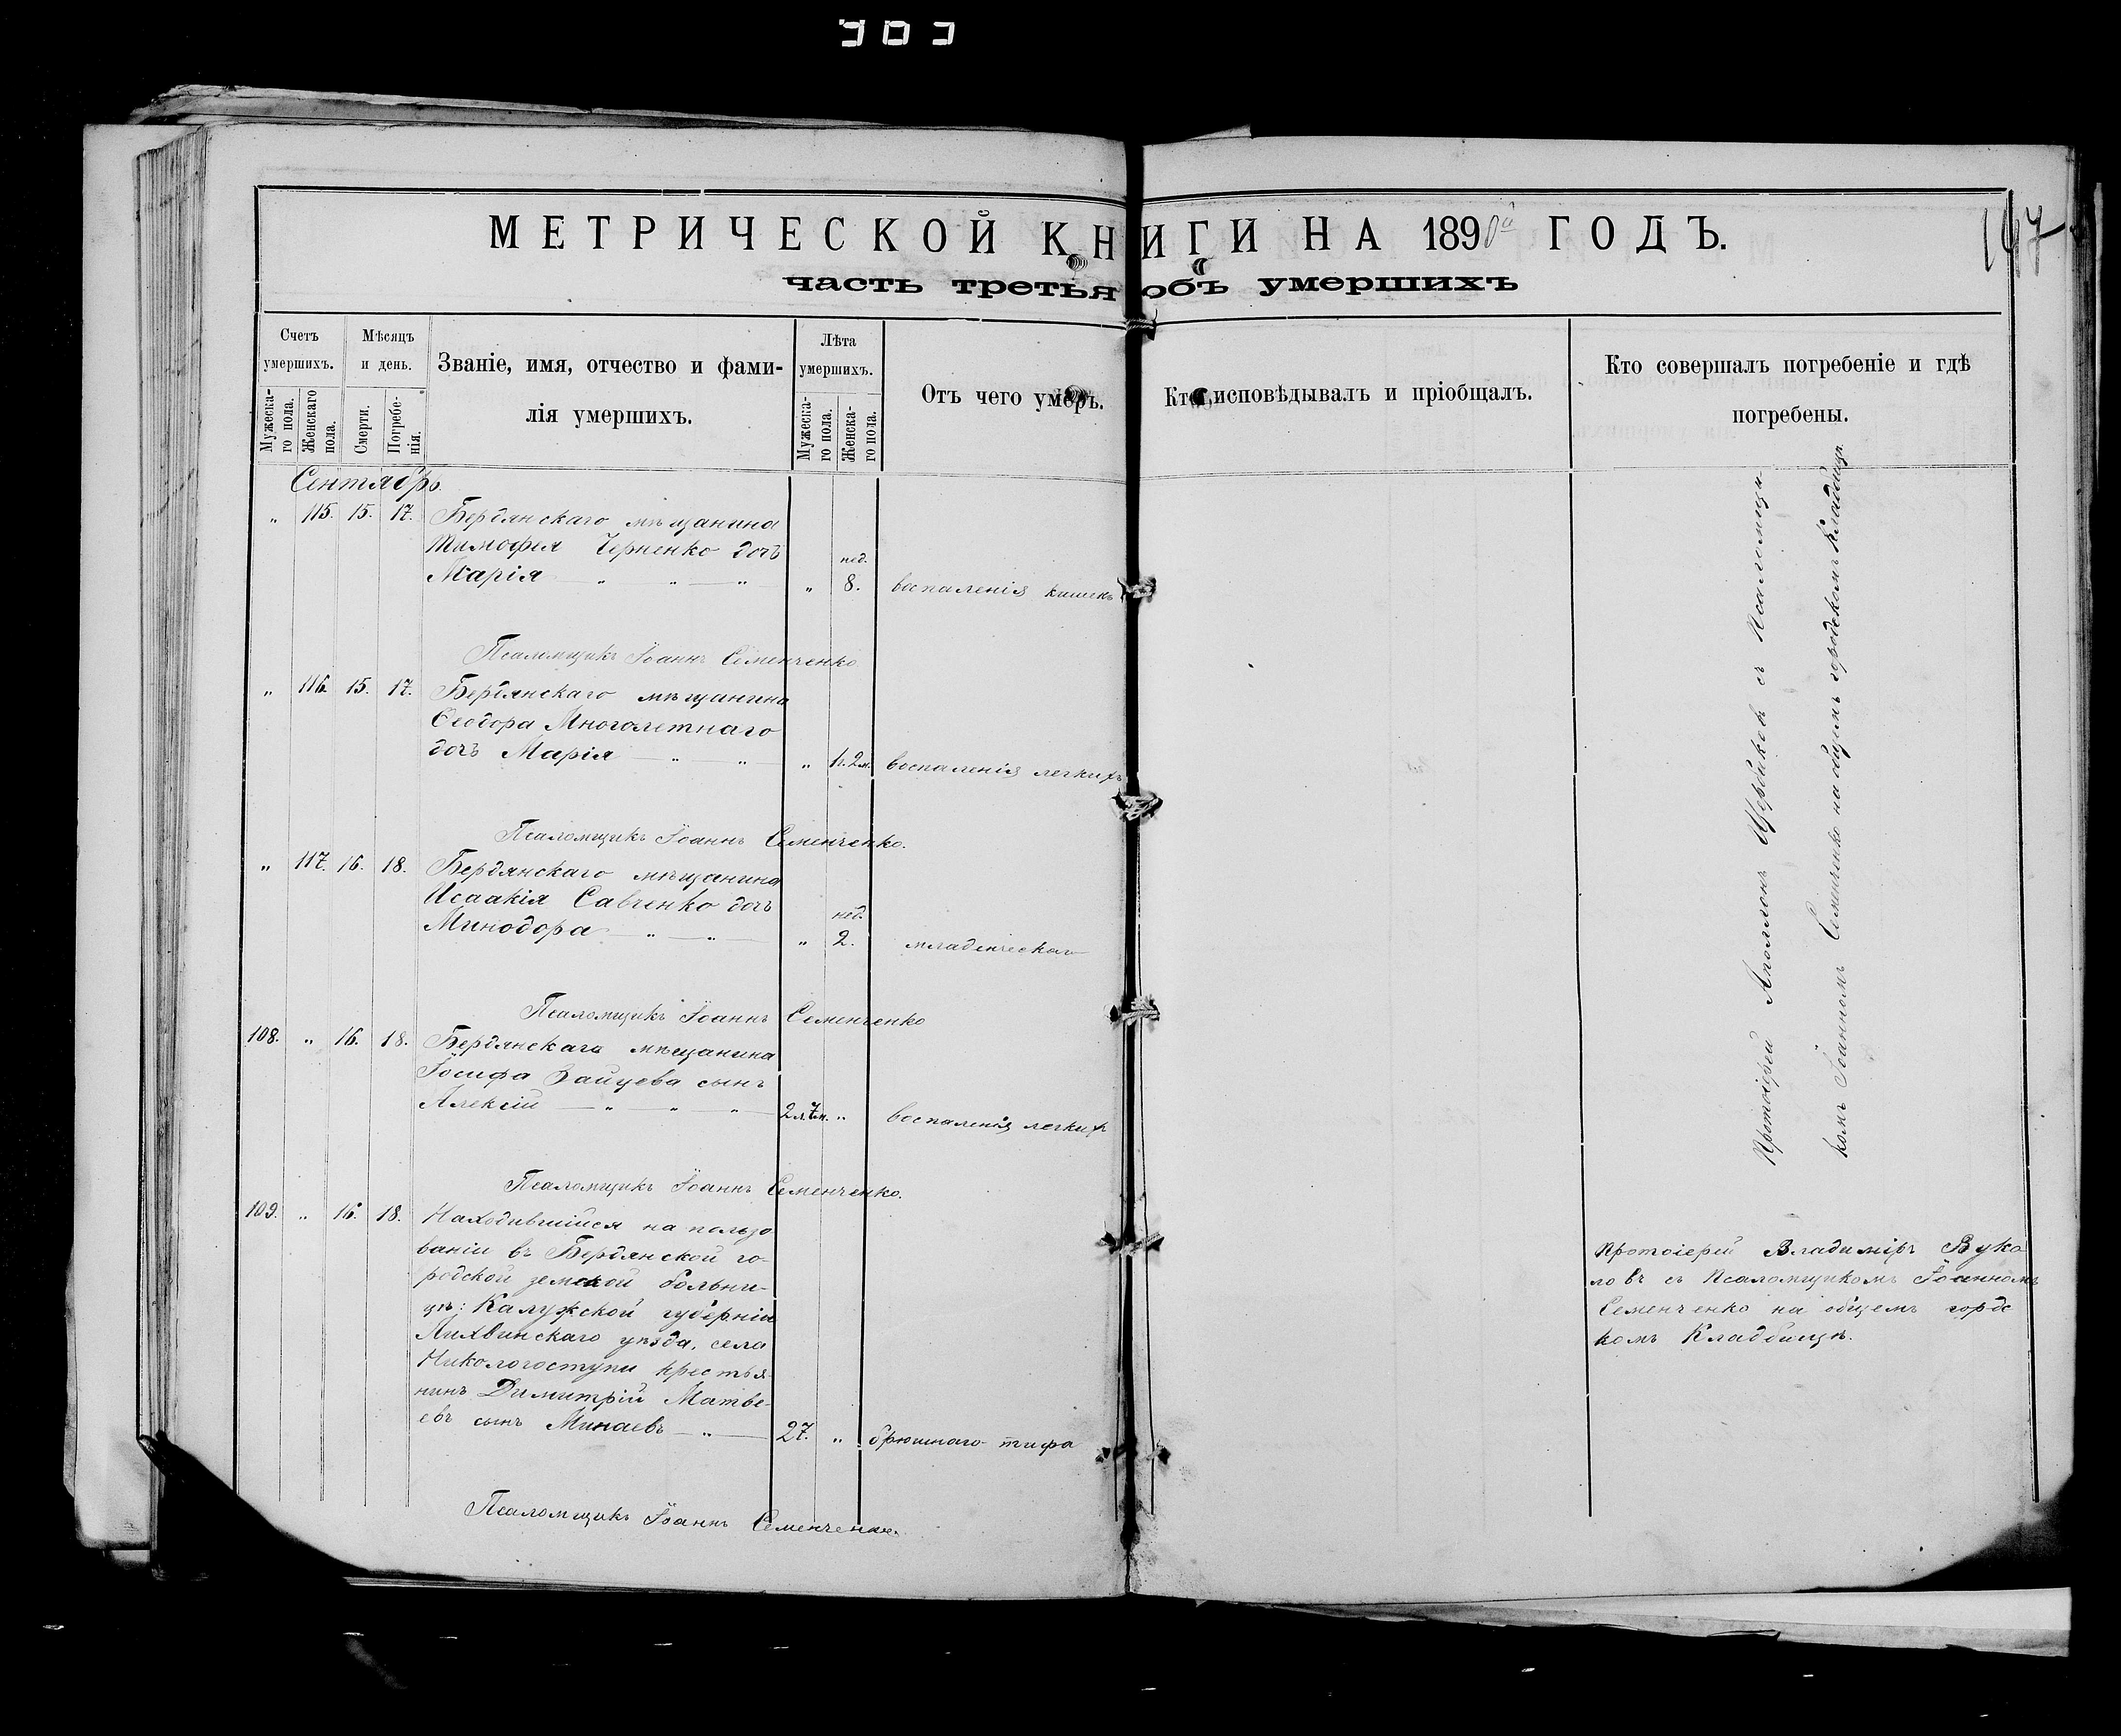 МЕТРИЧЕСКОЙ КНИГИ НА 1890й ГОДЪ.
147
часть третья объ умершихъ
Счетъ умершихъ.
Мужескаго пола.
Женскаго пола.
Мѣсяцъ и день.
Смерти.
Погребенія.
Званіе, имя, отчество и фами-
лія умершихъ.
Лѣта умершихъ.
Мужескаго пола.
Женскаго пола.
Отъ чего умеръ.
Кто исповѣдывалъ и пріобщалъ.
Кто совершалъ погребеніе и гдѣ
погребены.
Сентябрь.
„ 115. 15. 17. Бердянскаго мѣщанина
Тимофея Черненко дочь нед.
Марія „ „ „ „ 8. воспаленія кишекъ
Псаломщикъ Іоаннъ Семенченко
„ 116. 15. 17. Бердянскаго мѣщанина
Ѳеодора Многолетнаго
дочь Марія „ „ „ 1г.2м. воспаленія легкихъ
Псаломщикъ Іоаннъ Семенченко.
„ 117. 16. 18. Бердянскаго мѣщанина
Исаакія Савченко дочь нед.
Минодора „ „ „ 2. младенческой
Псаломщикъ Іоаннъ Семенченко
108. „ 16. 18. Бердянскаго мѣщанина
Іосифа Зайцева сынъ
Алексій „ „ „ 2л.7м. „ воспаленія легких
Псаломщикъ Іоаннъ Семенченко.
Протоіерей Аполлонъ Щербаковъ съ Псаломщи-
комъ Іоанномъ Семенченко на общемъ городскомъ Кладбищѣ.
109. „ 16. 18. Находившійся на пользо
ваніи въ Бердянской го-
родской земской больни-
цѣ: Калужской губерніи
Лихвинскаго уѣзда, села
Никологоступи крестья-
нинъ Димитрій Матве-
евъ сынъ Минаевъ „ 27. „ брюшнаго тифа
Протоіерей Владиміръ Вуко
ловъ съ Псаломщикомъ Іоанномъ
Семенченко на общемъ городс
комъ Кладбищѣ.
Псаломщикъ Іоаннъ Семенченко.